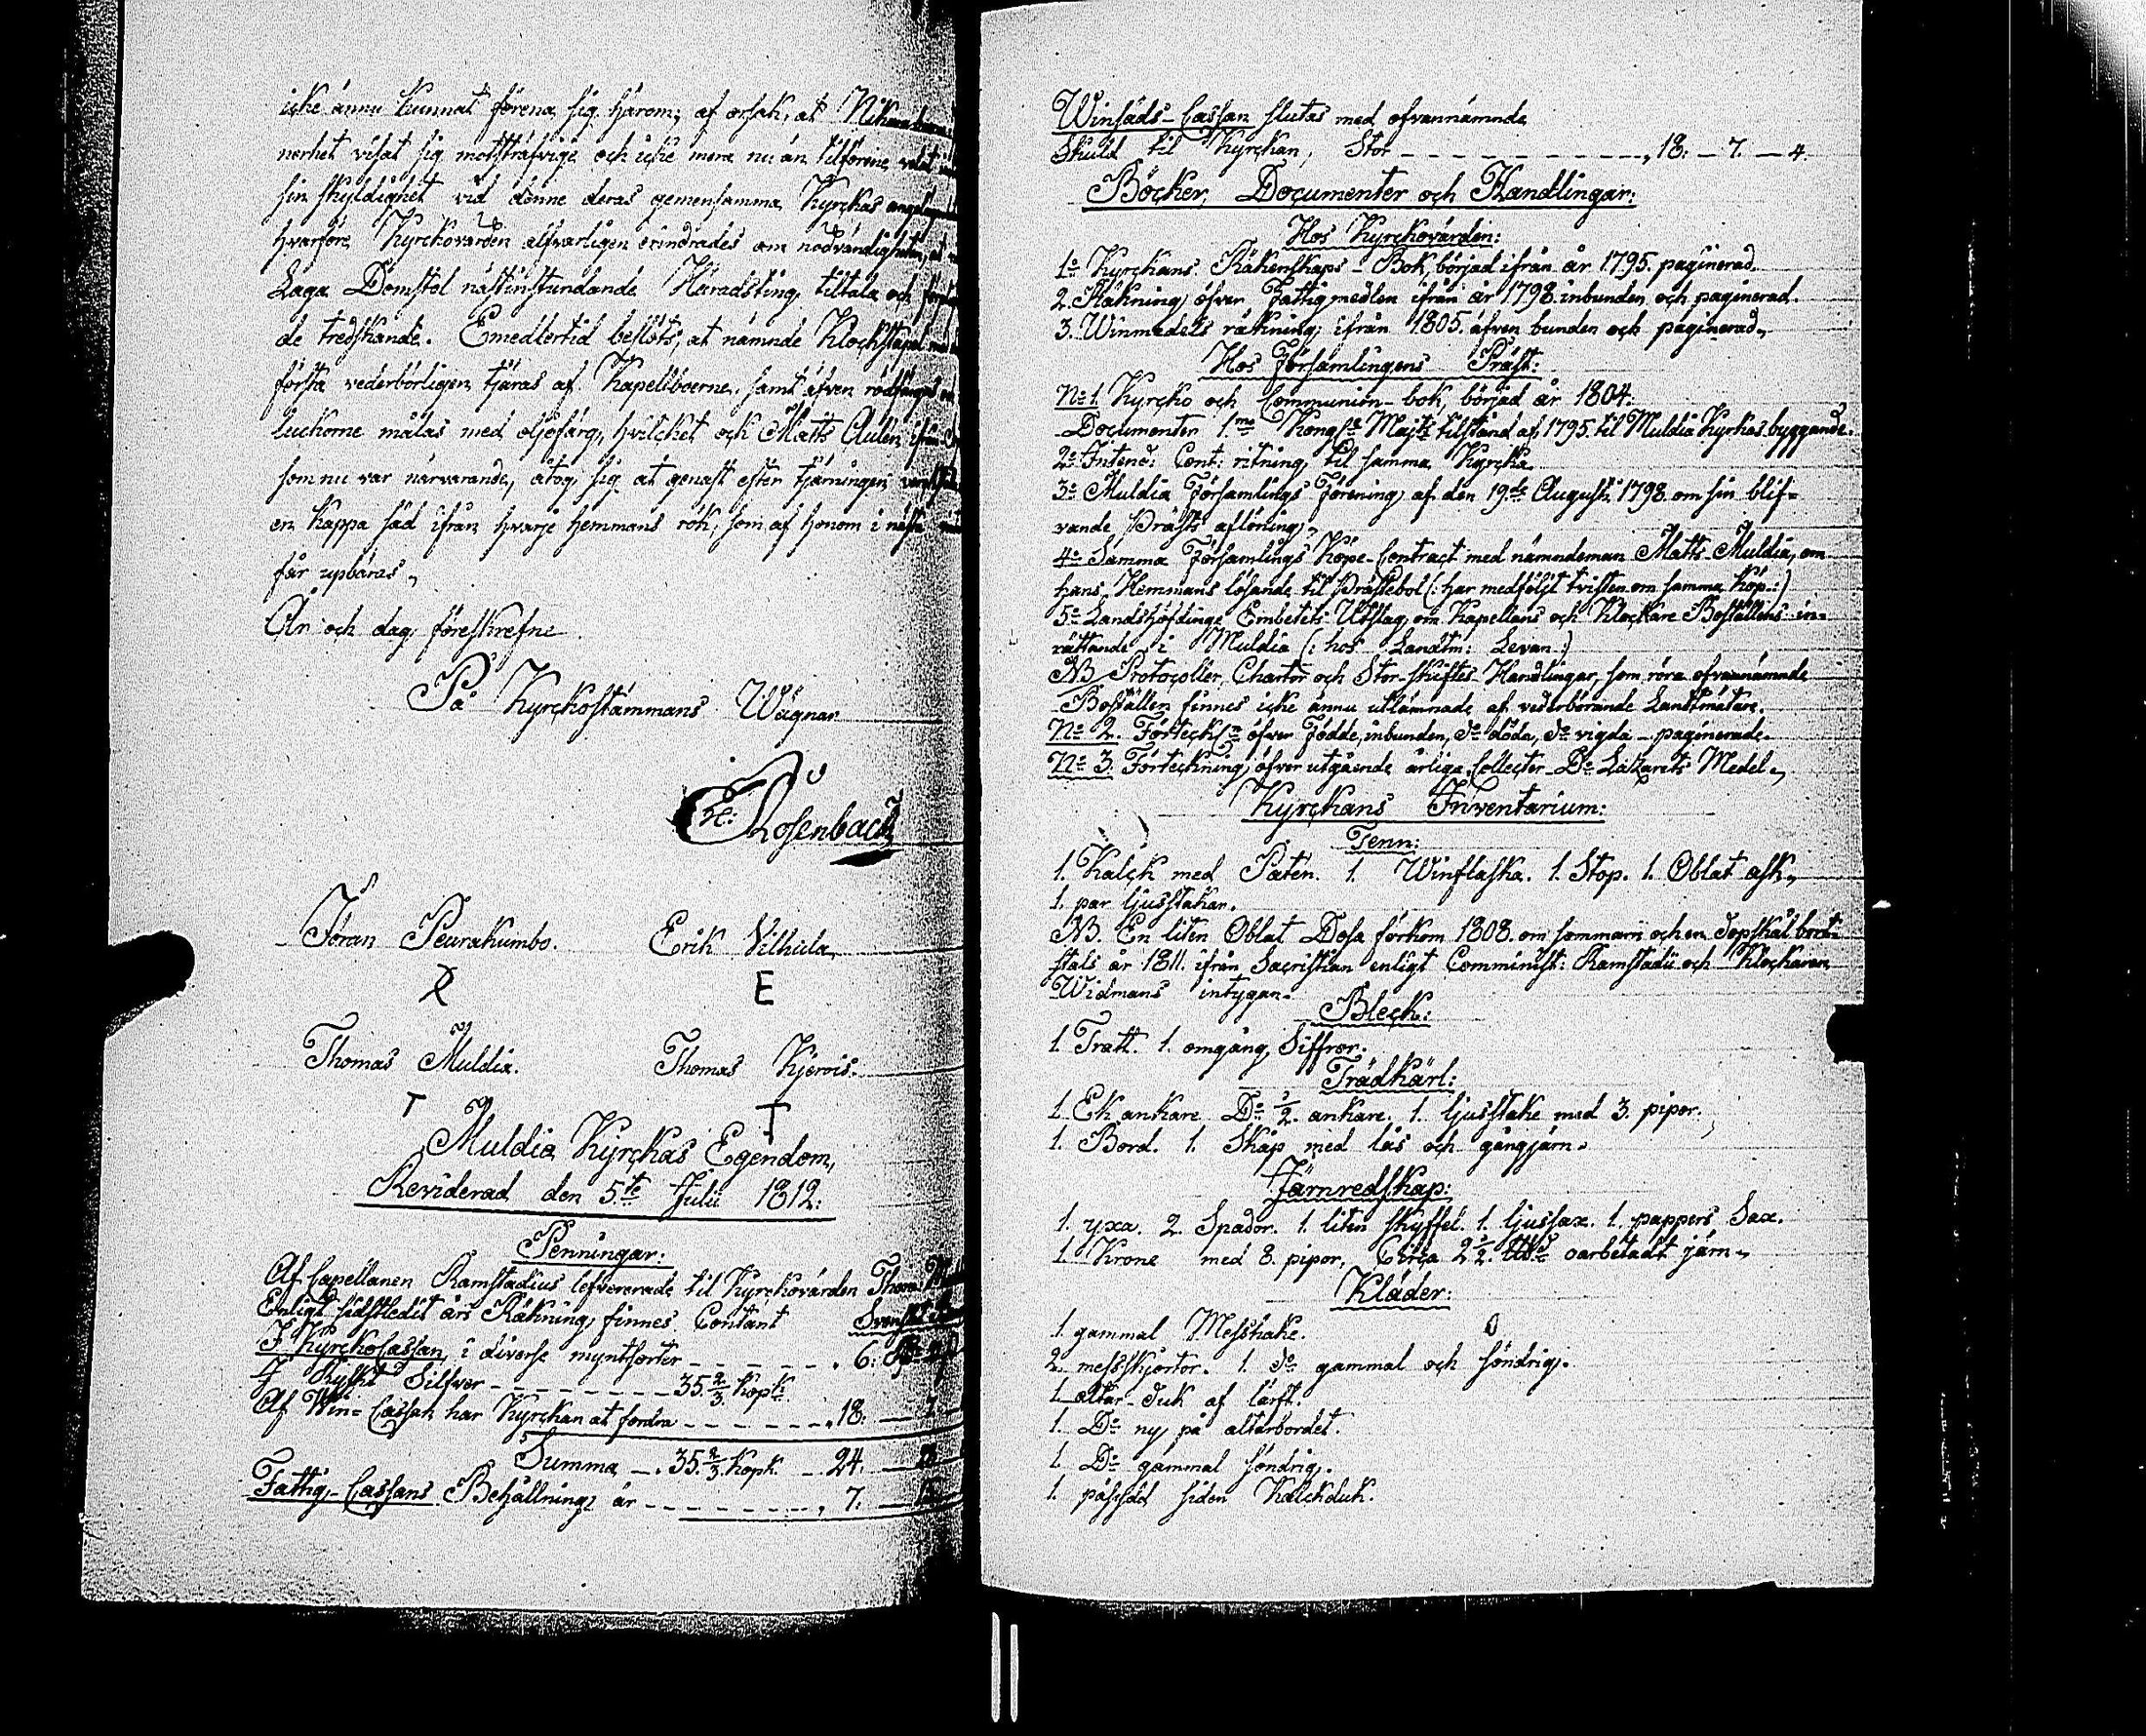 icke ännu kunnat förena sig härom; af orsak, at
nerhet visat sig motsträfvige och icke mera nu än tilförene velat
sin skyldighet vid denne deras gemensamma Kyrckas
hvarföre Kyrckovärden alfvarligen erindrades om nödvändigheten, at
Laga Domstol nästinstundande Häradsting tiltala och
de tredskande. Emedlertid beslöts, at nämnde Klockstapel
första vederbörligen tjäras af Kapellboerne, samt äfven rödfärgas
luckorne målas med oljofärg, hvilcket ock Matts Aulen ifrån
som nu var närvarande, åtog sig at genast efter tjärningen
en kappa säd ifrån hvarje hemmans rök, som af honom i nästa
får upbäras,
År och dag föreskrefne
På Kyrckostämmans Wägnar
Rosenback
Jöran Peurakumbo. Erik Vilhula
E
Thomas Muldia. Thomas Kjerois.
T T
Muldia Kyrckas Egendom,
Reviderad den 5te Julii 1812:
Penningar:
Af Capellanen Ramstadius lefvererade til Kyrckovärden
Enligt sidstledit års Räkning, finnes Contant Svenskt
I KyrckoCassan, i diverse myntsorter - - - - - - 6:
I Ryskt Silfver - - - - - - - - 35 2/3 kopk:
Af Win-Cassan har Kyrckan at fordra - - - - - - 18: — 7
Summa — 35 2/3 kopk. — 24. —
Fattig-Cassans Behållning är - - - - - - - - 7: —
Winsäds-Cassan slutas med ofvannämnde
Skuld til Kyrckan, Stor - - - - - - - - - - 18: — 7. — 4.
Böcker, Documenter och Handlingar:
Hos Kyrckovärden:
1o Kyrckans Räkenskaps-Bok, börjad ifrån år 1795. paginerad.
2. Räkning öfver Fattigmedlen ifrån år 1798. inbunden och paginerad.
3. Winmedels räkning ifrån 1805. äfven bunden och paginerad,
Hos Församlingens Präst:
No 1. Kyrcko och Communion-bok, börjad år 1804.
Documenter 1mo Kongl: Majts tilstånd af 1795. til Muldia Kyrkas byggande.
2o Intend: Cont: ritning til samma Kyrcka
3o Muldia Församlings Förening af den 19de Augusti 1798. om sin blif-
vande Prästs aflöning,
4o Samma Församlings Köpe-Contract med nämndeman Matts Muldia, om
hans Hemmans lösande til Prästebol (: har medföljt tvisten om samma köp:)
5o Landshöfdinge Embetets Utslag om Kapellans och Klockare Boställens in-
rättande i Muldia (: hos Landtm: Levan:)
NB Protocoller, Chartor och Stor-skiftes Handlingar, som röra ofvannämnde
Boställen finnes icke ännu utlämnade af vederbörande Landtmätare.
No 2. Förteckn öfver Födde, inbunden, do döda, do vigda - paginerade.
No 3. Förteckning öfver utgående årliga Collecter Do Lazarets Medel,
Kyrckans Inventarium:
Tenn:
1. Kalck med Patén. 1. Winflaska. 1. Stop. 1. Oblat ask,
1. par ljusstakar.
NB. En liten Oblat Dosa förkom 1808. om sommarn och en Dopskål bort-
stals år 1811. ifrån Sacristian enligt Comminist: Ramstadii och Klockaren
Widmans intygan.
Bleck:
1. Tratt. 1. omgång Siffror.
Trädkärl:
1. Ek ankare Do 1/2. ankare. 1. ljusstake med 3. pipor.
1. Bord. 1. Skåp med lås och gångjärn.
Järnredskap:
1. yxa. 2. Spador. 1. liten skyffel. 1. ljussax. 1. pappers Sax.
1. Krone med 8. pipor, Circa 2 1/2. oarbetadt järn,
Kläder:
1. gammal Messhake.
2. messskjortor. 1. do gammal och söndrig.
1. altar-duk af lärft.
1. Do ny på altarbordet.
1. Do gammal söndrig.
1. siden Kalckduk.